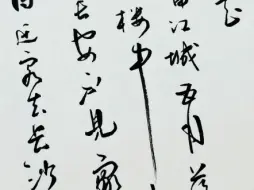 迁客去长沙
长安不见家
楼中
江城五月落
花